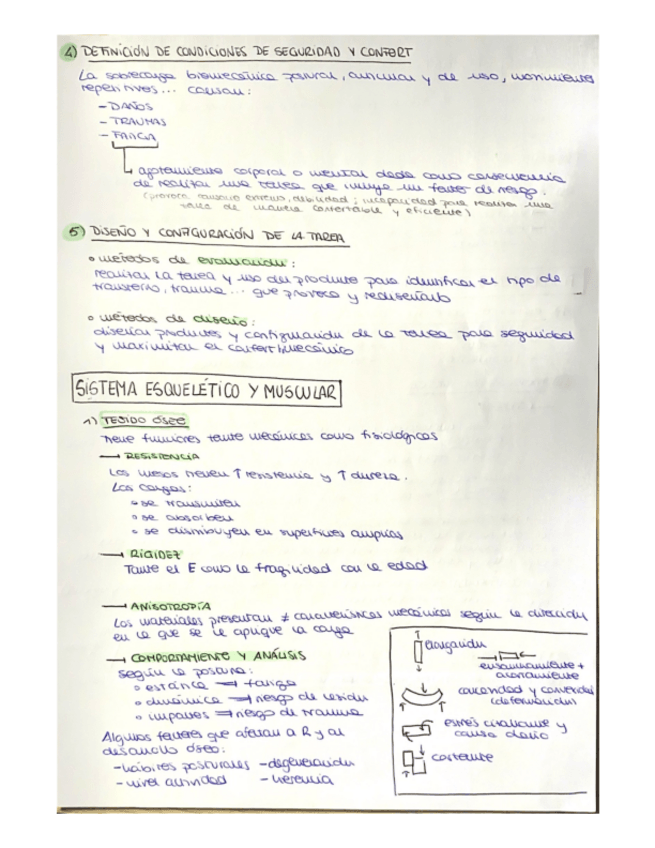 4) DEFINICIÓN DE CONDICIONES DE SEGURIDAD Y CONFORT
La sobrecarga biomecánica postural, articular y de uso, movimientos
repetitivos... causan:
- DAÑOS
- TRAUMAS
- FATIGA
agotamiento corporal o mental dado como consecuencia
de realizar una tarea que incluye un factor de riesgo.
(provoca cansancio extremo, debilidad; incapacidad para realizar una
tarea de manera confortable y eficiente)
5) DISEÑO Y CONFIGURACIÓN DE LA TAREA
• métodos de evaluación:
realizar la tarea y uso del producto para identificar el tipo de
trastorno, trauma... que provoca y rediseñarlo
• métodos de diseño:
diseñar productos y configuración de la tarea para seguridad
y maximizar el confort biomecánico
SISTEMA ESQUELÉTICO Y MUSCULAR
1) TEJIDO ÓSEO
Tiene funciones tanto mecánicas como fisiológicas
→ RESISTENCIA
Los huesos tienen ↑ resistencia y ↑ dureza.
Las cargas:
• se transmiten
• se absorben
• se distribuyen en superficies amplias
→ RIGIDEZ
Tanto el E como la fragilidad con la edad
→ ANISOTROPÍA
Los materiales presentan ≠ características mecánicas según la dirección
en la que se le aplique la carga
→ COMPORTAMIENTO Y ANÁLISIS
según la postura:
• estática → fatiga
• dinámica → riesgo de lesión
• impactos → riesgo de trauma
Algunos factores que afectan a R y al
desarrollo óseo:
- hábitos posturales - degeneración
- nivel actividad - herencia
elongación
ensanchamiento +
acortamiento
concavidad y convexidad
(deformación)
estrés cizallante y
causa daño
cortante